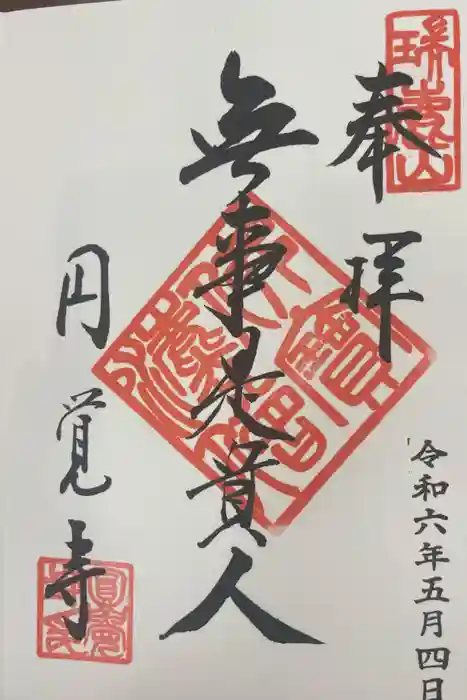 奉拝
瑞鹿山
令和六年五月四日
無事是貴人
円覚寺